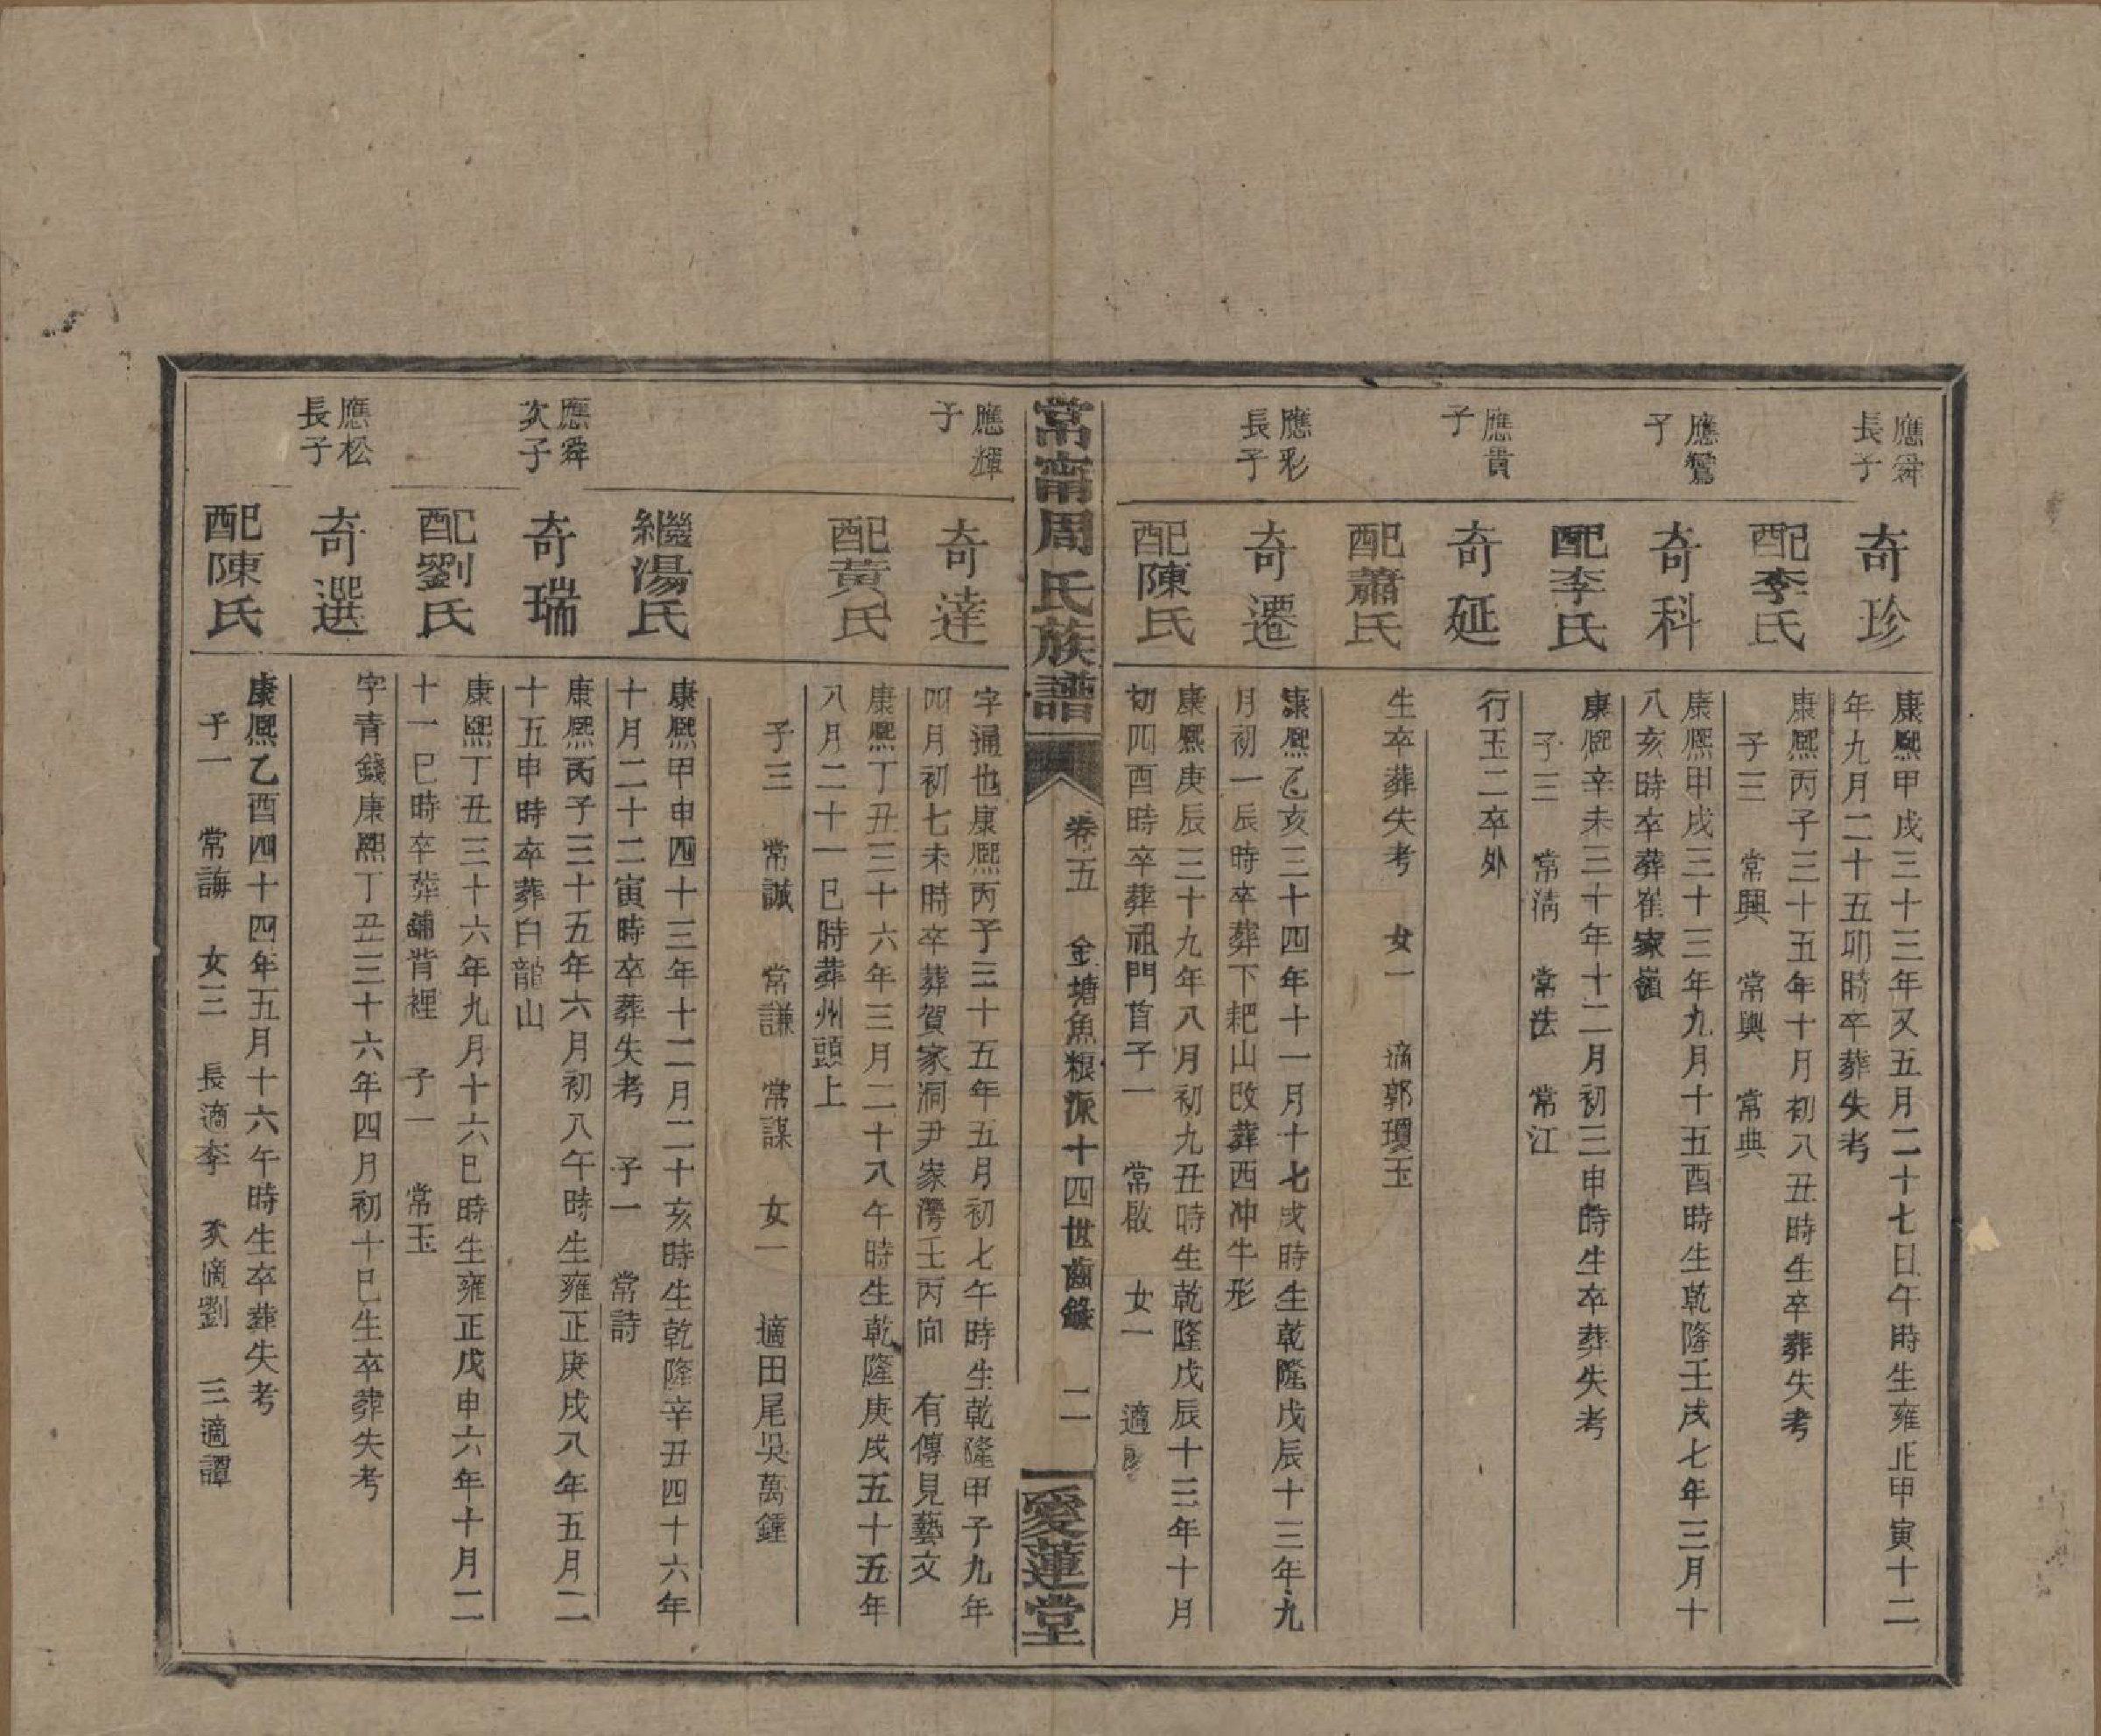 應舜
長子
奇珍
康熈甲戌三十三年又五月二十七日午時生雍正甲寅十二
年九月二十五卯時卒葬失考
配李氏
康熈丙子三十五年十月初八丑時生卒葬失考
子三 常興 常輿 常典
應鸞
子
奇科
康熈甲戌三十三年九月十五酉時生乾隆壬戌七年三月十
八亥時卒葬崔家嶺
配李氏
康熈辛未三十年十二月初三申時生卒葬失考
子三 常淸 常法 常江
應貴
子
奇延
行玉二卒外
配蕭氏
生卒葬失考 女一 適郭瓊玉
應彩
長子
奇遷
康熈乙亥三十四年十一月十七戌時生乾隆戊辰十三年九
月初一辰時卒葬下耙山改葬西冲牛形
配陳氏
康熈庚辰三十九年八月初九丑時生乾隆戊辰十三年十月
初四酉時卒葬祖門首子一 常啟 女一 適
常甯周氏族譜
卷五 金塘魚粮派十四世齒錄 二
愛蓮堂
應輝
子
奇達
字通也康熈丙子三十五年五月初七午時生乾隆甲子九年
四月初七未時卒葬賀家洞尹家灣壬丙向 有傳見藝文
配黃氏
康熈丁丑三十六年三月二十八午時生乾隆庚戌五十五年
八月二十一巳時葬州頭上
子三 常誠 常謙 常謀 女一 適田尾吳萬鍾
繼湯氏
康熈甲申四十三年十二月二十亥時生乾隆辛丑四十六年
十月二十二寅時卒葬失考 子一 常詩
應舜
次子
奇瑞
康熈丙子三十五年六月初八午時生雍正庚戌八年五月二
十五申時卒葬白龍山
配劉氏
康熈丁丑三十六年九月十六巳時生雍正戊申六年十月二
十一巳時卒葬舖背裡 子一 常玉
應松
長子
奇選
字青錢康熈丁丑三十六年四月初十巳生卒葬失考
配陳氏
康熈乙酉四十四年五月十六午時生卒葬失考
子一 常誨 女三 長適李 次適劉 三適譚